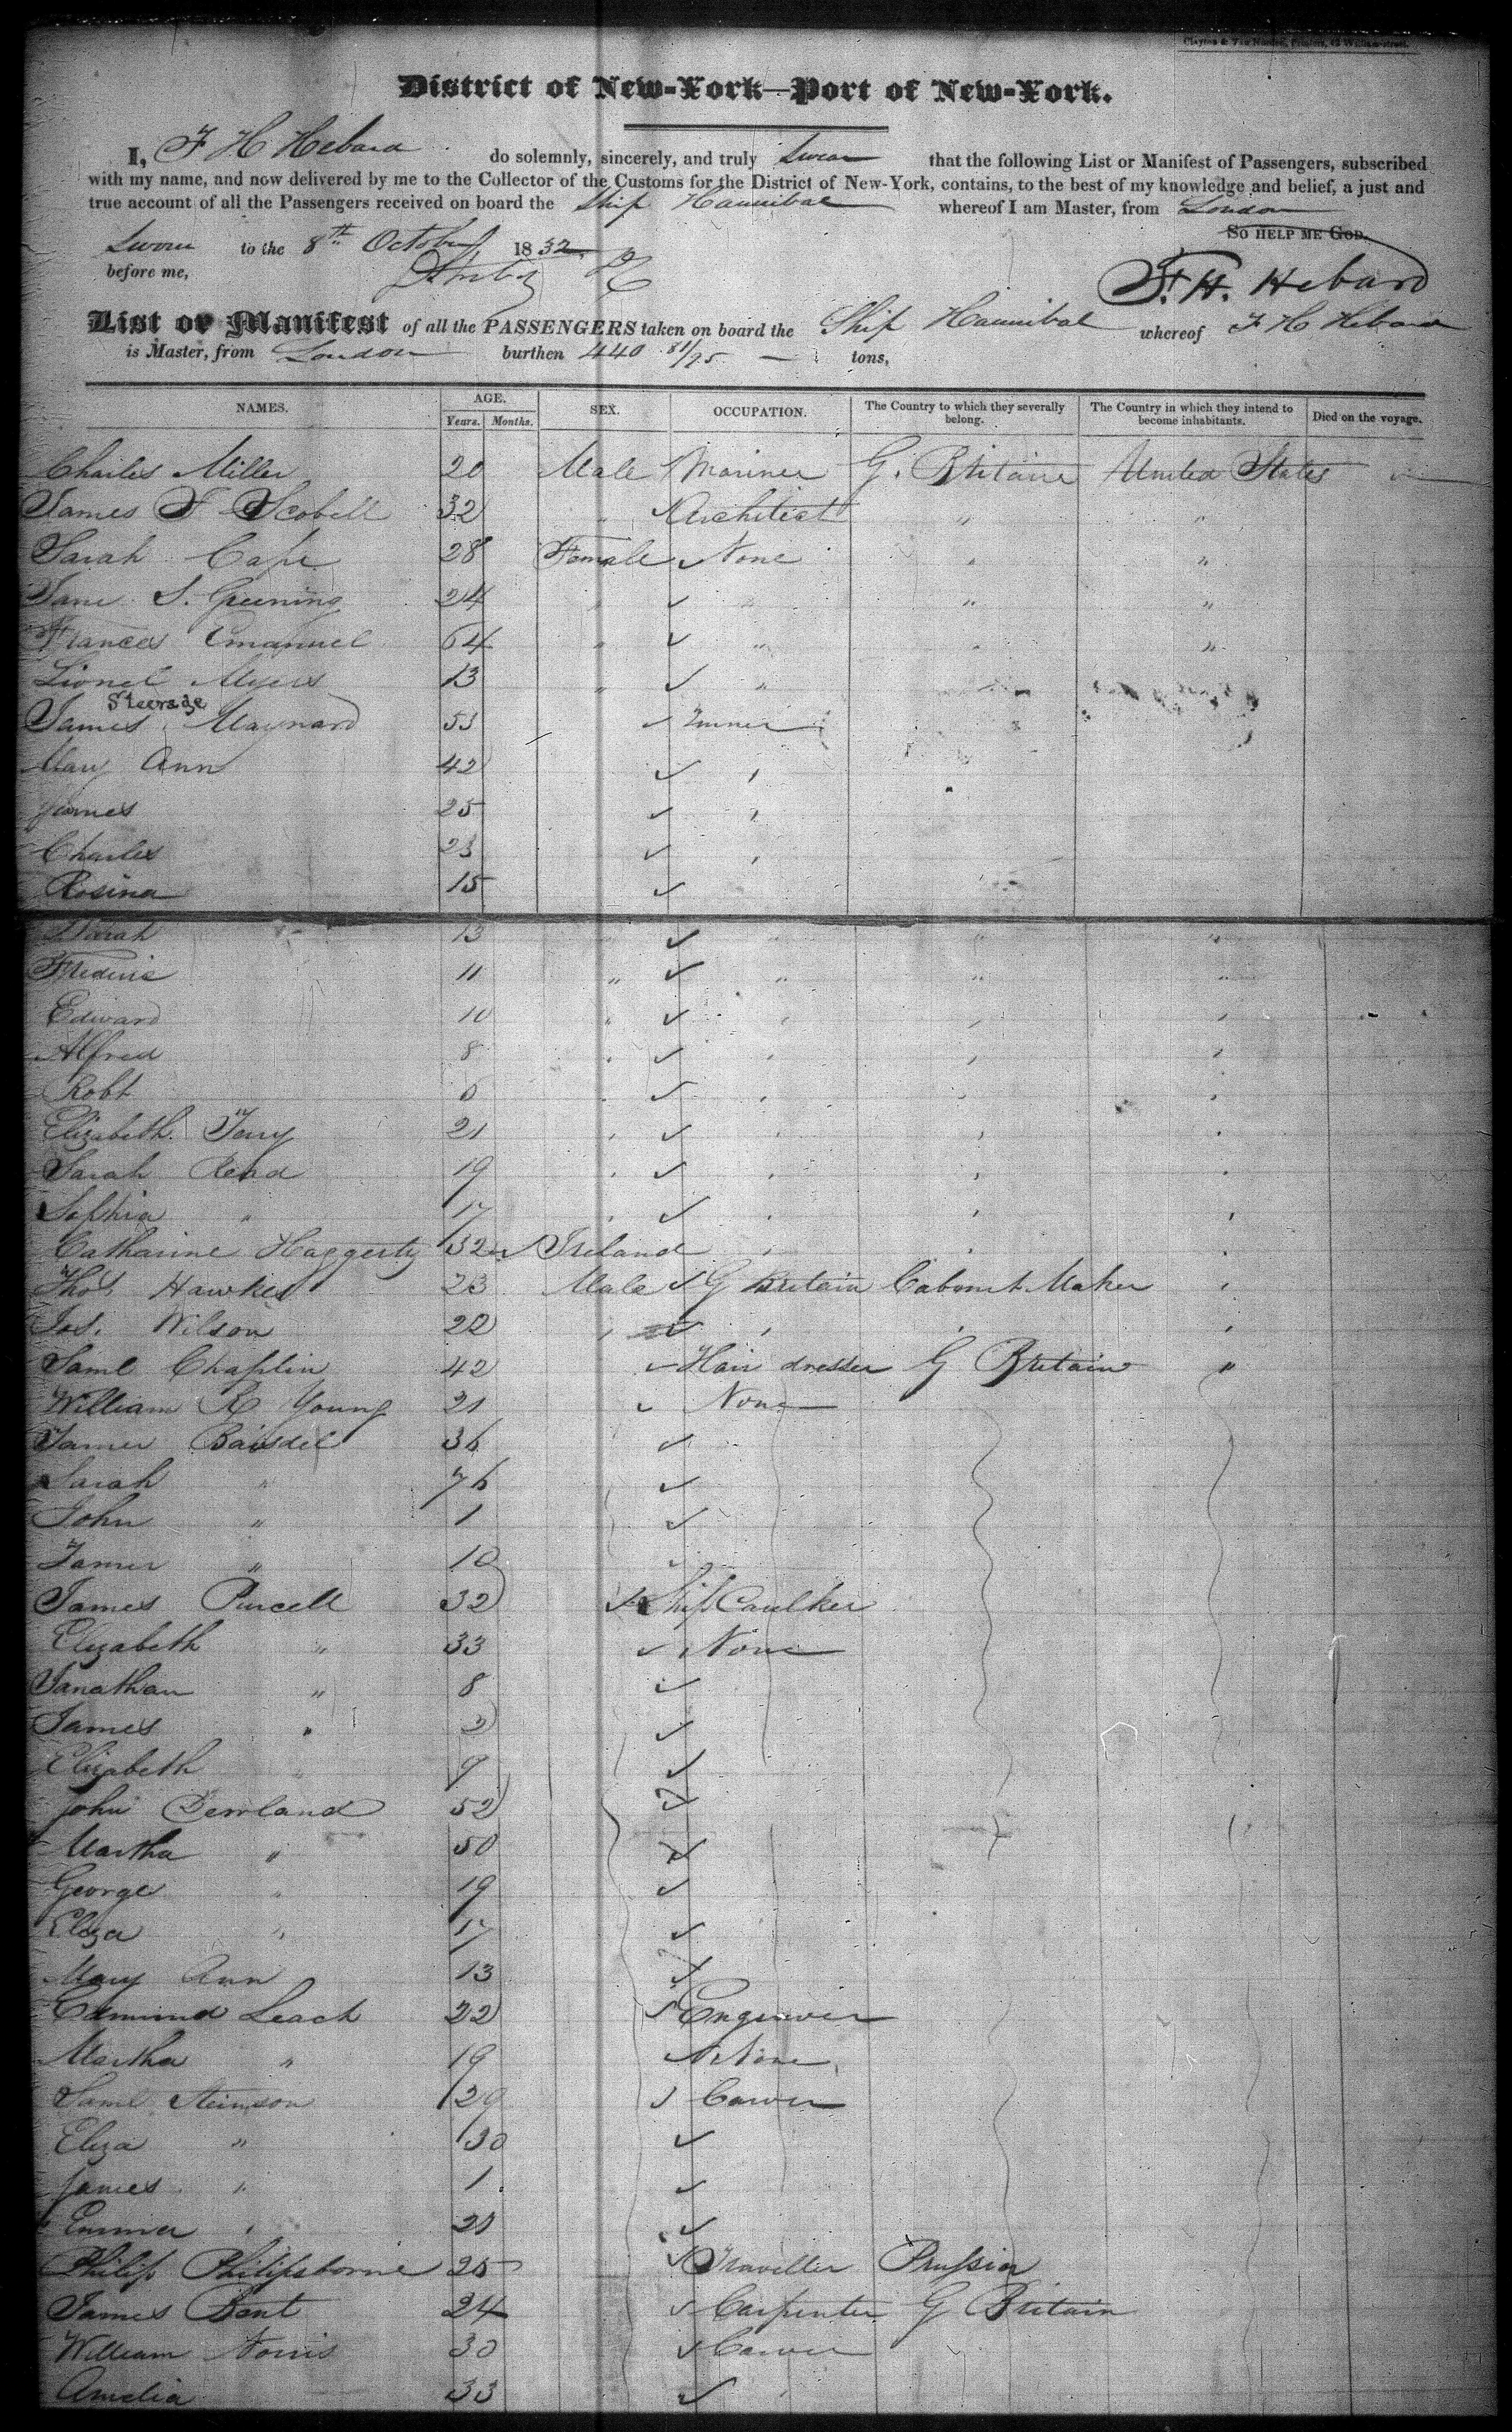 Clayton & Van Norden, Printers, 42 William-street.
District of New-York—Port of New-York.
I, F H Hebard do solemnly, sincerely, and truly Swear that the following List or Manifest of Passengers, subscribed
with my name, and now delivered by me to the Collector of the Customs for the District of New-York, contains, to the best of my knowledge and belief, a just and
true account of all the Passengers received on board the Ship Hannibal whereof I am Master, from London
So HELP ME GOD.
Sworn to the 8th October 1832
before me,
F. H. Hebard
List or Manifest of all the PASSENGERS taken on board the Ship Hannibal whereof F H Hebard
is Master, from London burthen 440 81/95 tons,
NAMES. AGE. SEX. OCCUPATION. The Country to which they severally belong. The Country in which they intend to become inhabitants. Died on the voyage.
Years. Months.
Charles Miller 20 Male Mariner G. Britain United States
James F Scobell 32 " Architect " "
Sarah Cape 28 Female None " "
Jane S. Greening 24 " " " "
Frances Emanuel 64 " " " "
Lionel Myers 13 " " "
Steerage
James Maynard 53
Mary Ann 42 "
James 25 "
Charles 23 "
Rosina 15
Sarah 13 " " " "
Frederic 11 " " " "
Edward 10 " " " "
Alfred 8 " " " "
Robt 6 " " " "
Elizabeth Terry 21 " " "
Sarah Read 19 " " " "
Sophia " 17 " " " "
Catharine Haggerty 32 Ireland " " "
Thos Hawkes 23 Male G Britain Cabinet Maker "
Jos. Wilson 22 " " " "
Saml Chaplin 42 Hair dresser G Britain "
William R Young 21 None
James Baisdel 36
Sarah " 76
John " 1
James " 10
James Purcell 32 Ship Caulker
Elizabeth " 33 None
Janathan " 8
James " 3
Elizabeth " 9
John Dewland 52
Martha " 50
George " 19
Eliza " 17
Mary Ann 13
Edmund Leach 22 Engraver
Martha " 19 None
Saml Stimson 29 Carver
Eliza " 30
James " 1
Emma " 20
Philip Philipsborne 25 Traveller Prussia
James Bent 24 Carpenter G Britain
William Norris 30 Carver
Amelia 33 "